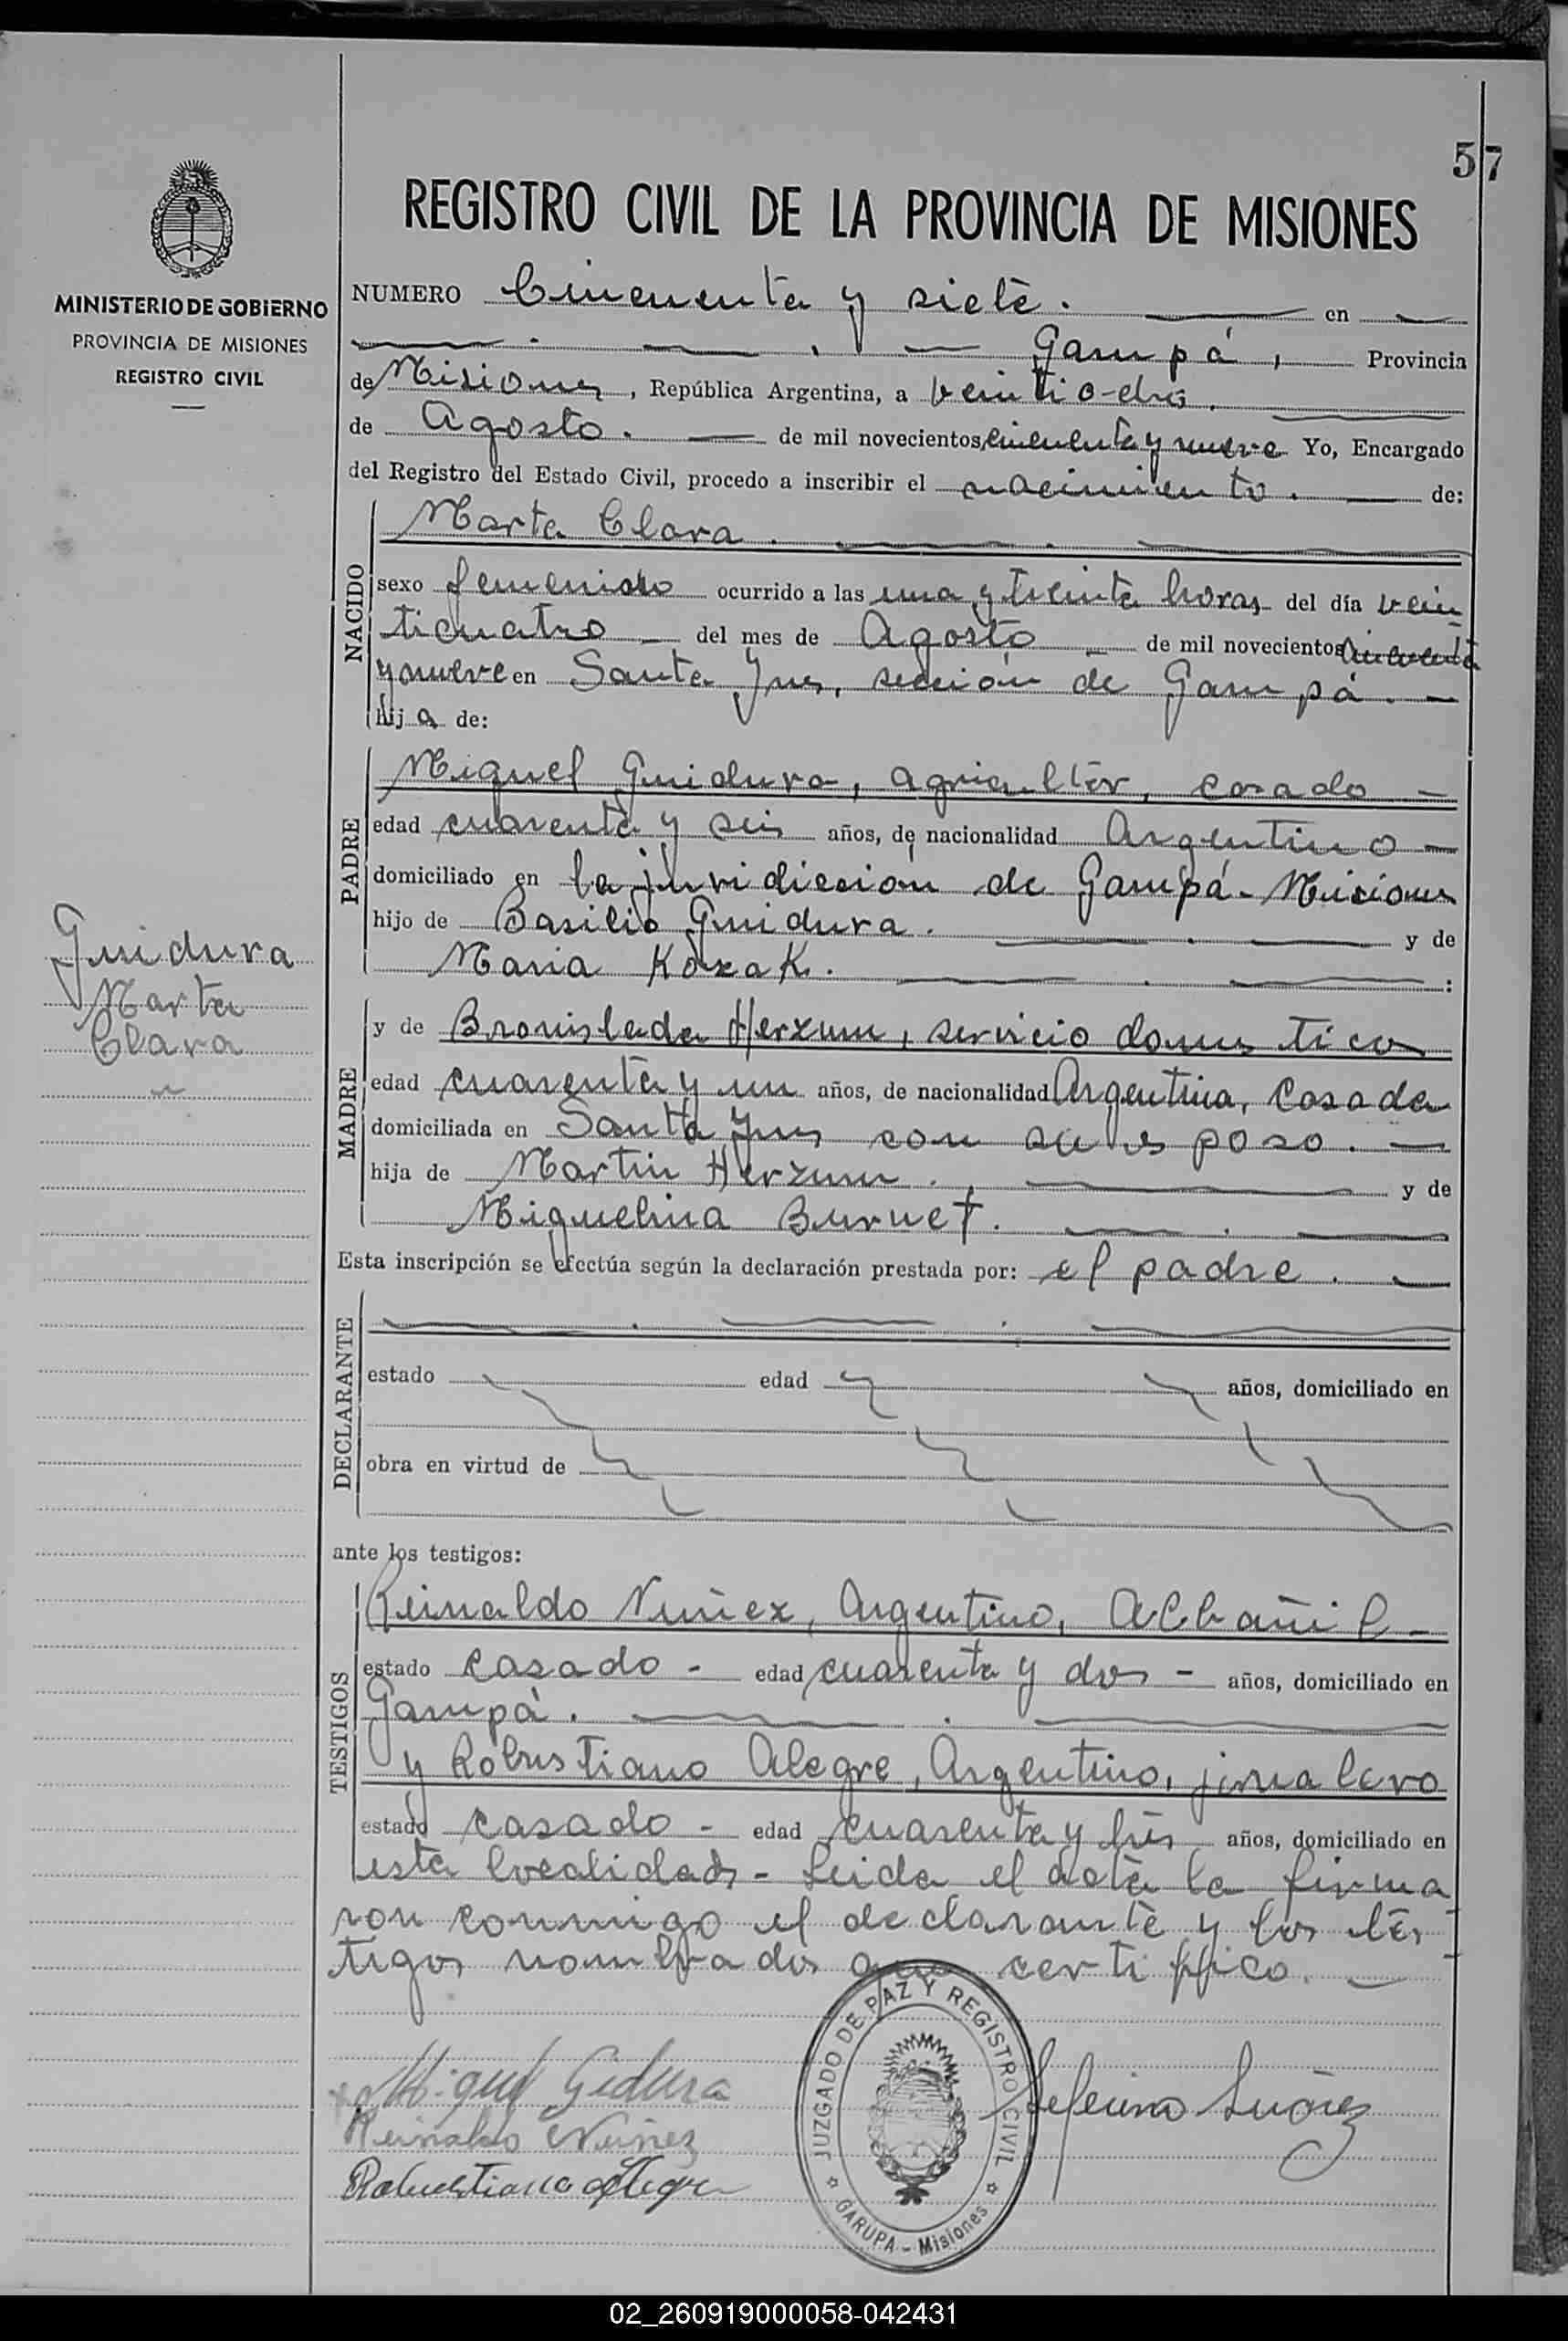 57
REGISTRO CIVIL DE LA PROVINCIA DE MISIONES
MINISTERIO DE GOBIERNO
PROVINCIA DE MISIONES
REGISTRO CIVIL
NUMERO Cincuenta y siete. en
Garupá, Provincia
de Misiones, República Argentina, a
de Agosto. de mil novecientos cincuenta y nueve Yo, Encargado
del Registro del Estado Civil, procedo a inscribir el nacimiento. de:
NACIDO
Marta Clara.
sexo femenino ocurrido a las una y treinta horas del día vein
ticuatro del mes de Agosto de mil novecientos cincuenta
y nueve en Santa Ines, sección de Garupá.
hija de:
PADRE
Miguel Guidura, agricultor, casado
edad cuarenta y seis años, de nacionalidad Argentino
domiciliado en la juridiccion de Garupá - Misiones
hijo de Basilio Guidura. y de
Maria Kozak. :
Guidura
Marta
Clara
MADRE
y de Bronislada Herzum, servicio domestico
edad cuarenta y un años, de nacionalidad Argentina, Casada
domiciliada en Santa Ines con su esposo.
hija de Martin Herzum. y de
Miguelina Burnet.
Esta inscripción se efectúa según la declaración prestada por: el padre.
DECLARANTE
estado edad años, domiciliado en
obra en virtud de
ante los testigos:
TESTIGOS
Reinaldo Nuñez, Argentino, Albañil -
estado casado - edad cuarenta y dos - años, domiciliado en
Garupá.
y Robustiano Alegre, Argentino, jornalero
estado casado - edad cuarenta y tres años, domiciliado en
esta localidad, - Leida el acta la firma
ron conmigo el declarante y los tes-
tigos nombrados que certifico.
Miguel Gidura
Reinaldo Nuñez
Robustiano Alegre
Suárez
JUZGADO DE PAZ Y REGISTRO CIVIL
GARUPA - Misiones
02_260919000058-042431